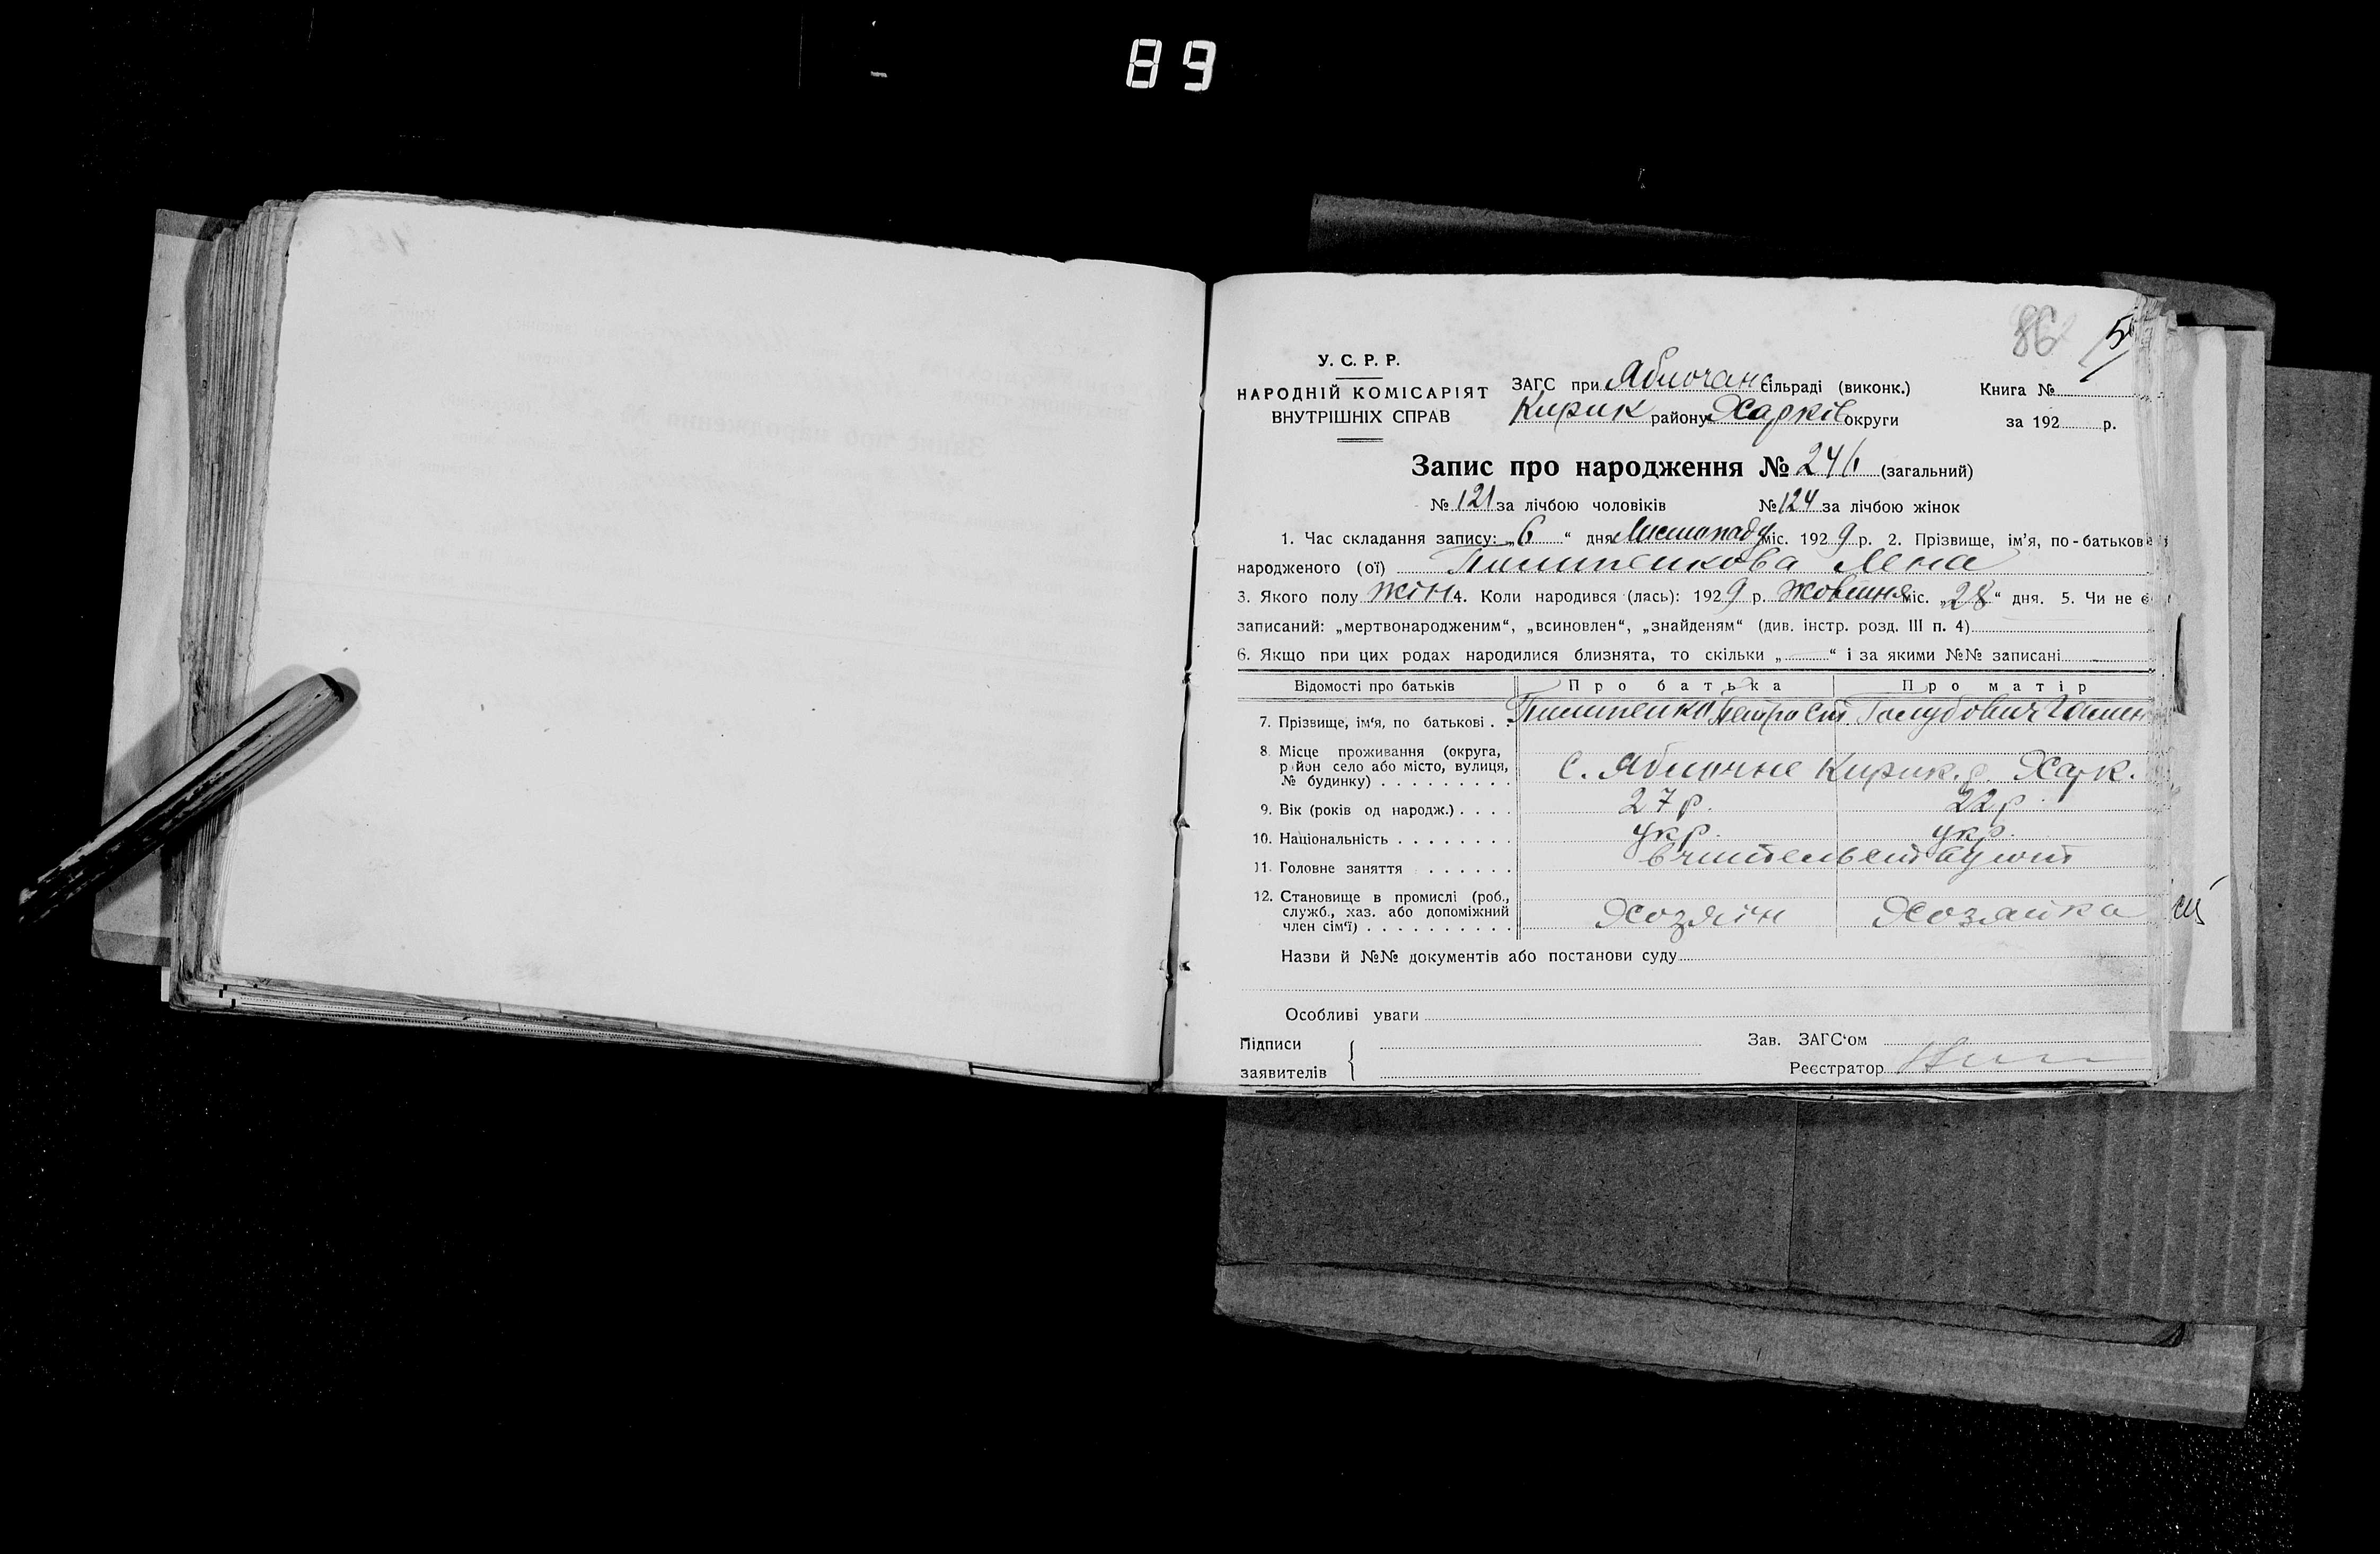 89
86
У. С. Р. Р.
НАРОДНІЙ КОМІСАРІЯТ
ВНУТРІШНІХ СПРАВ
ЗАГС при Яблочан сільраді (виконк.)
Кирик району Харків округи
Книга №
за 192 р.
Запис про народження № 246 (загальний)
№ 121 за лічбою чоловіків № 124 за лічбою жінок
1. Час складання запису: „6“ дня Листопаду міс. 1929 р. 2. Прізвище, ім’я, по-батькові
народженого (ої) Лена
3. Якого полу жін 4. Коли народився (лась): 1929 р. Жовтня міс. „28“ дня. 5. Чи не є
записаний: „мертвонародженим“, „всиновлен“, „знайденям“ (див. інстр. розд. III п. 4)
6. Якщо при цих родах народилися близнята, то скільки „ “ і за якими №№ записані
Відомості про батьків Про батька Про матір
7. Прізвище, ім‘я, по батькові . . Петро Голубович
8. Місце проживання (округа,
район село або місто, вулиця,
№ будинку) . . . . . . . . .
с. Яблучне Кирик. р. Харк.
9. Вік (років од народж.) . . . . 27 р. 22 р.
10. Національність . . . . . . . . укр. укр.
11. Головне заняття . . . . . .
12. Становище в промислі (роб.,
служб., хаз. або допоміжний
член сім‘ї) . . . . . . . . . .
Хозяїн Хозяйка
Назви й №№ документів або постанови суду
Особливі уваги
Підписи
заявителів
Зав. ЗАГС‘ом
Реєстратор